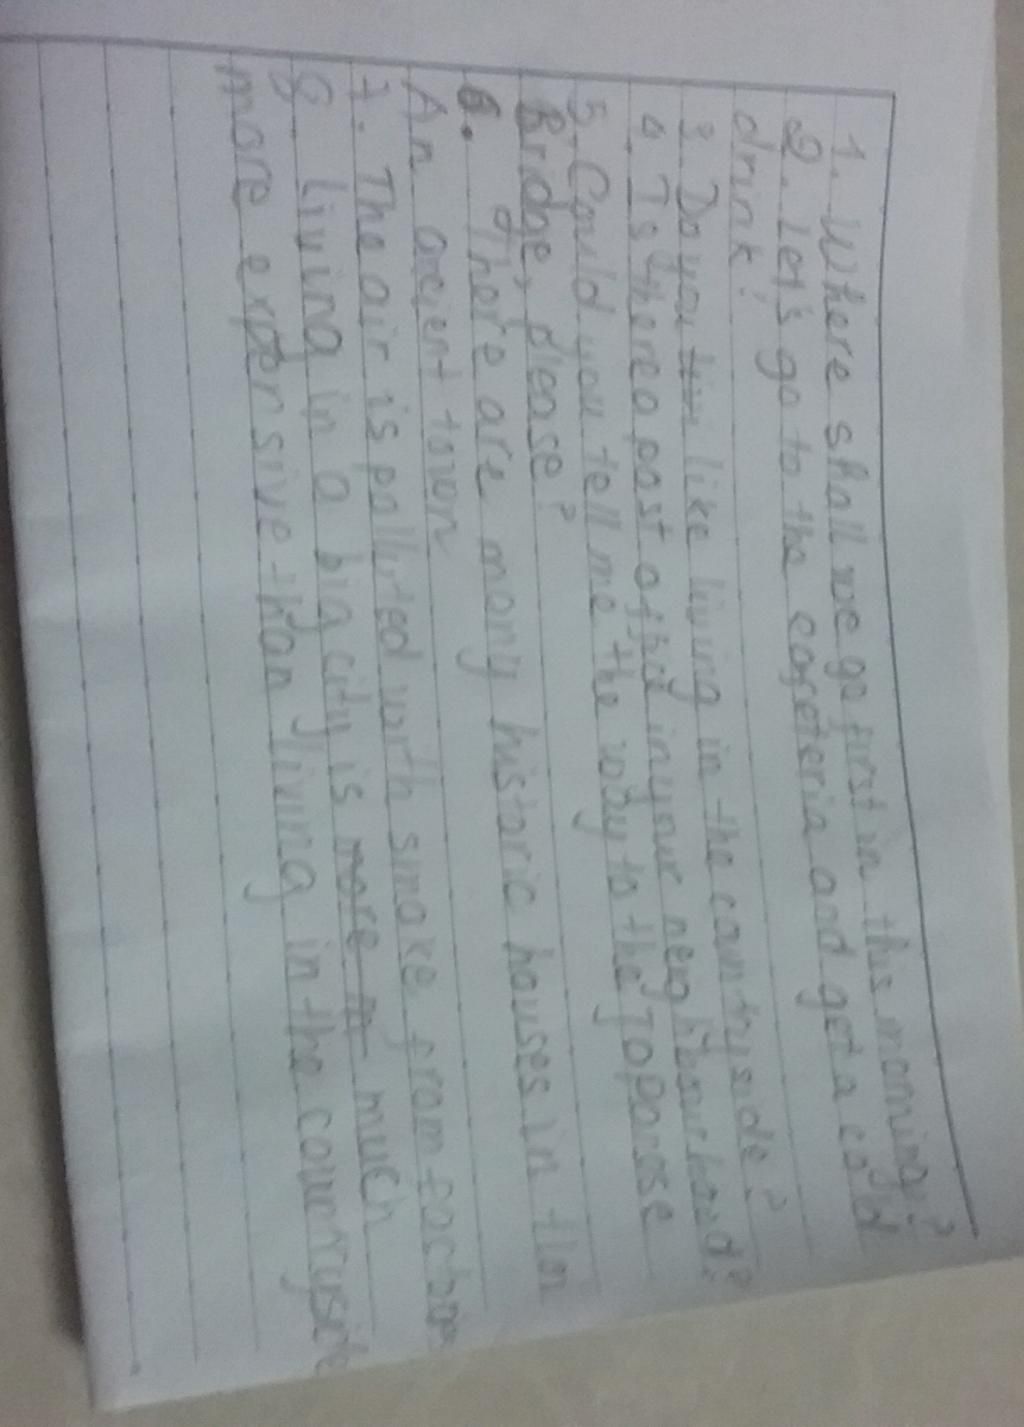 1. Where shall we go first in this morning?
2. let's go to the cafeteria and get a cold
drink!
3. Do you like living in the countryside?
4. Is there a post office in your neighbourhood?
5. Could you tell me the way to the Japanese
Bridge, please?
6. There are many historic houses in
An ancient town
7. The air is polluted with smoke from
8. living in a big city is much
more expensive than living in the countryside